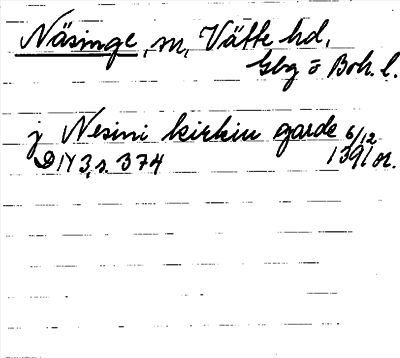 Näsinge, sn, Vätte hd,
Gbg o Boh. l.
j Nesini kirkiu garde 6/12
DN 3, s. 374 1391 or.